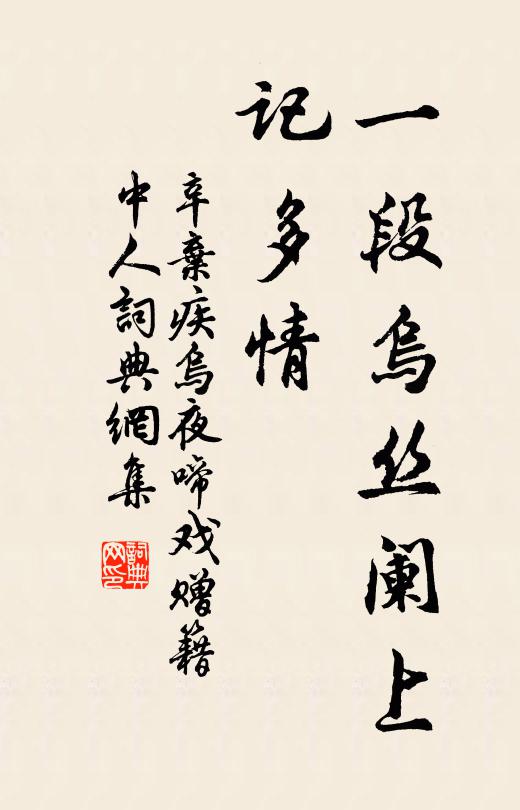 一段乌丝阑上
记多情
辛棄疾乌夜啼戏赠籍
中人詞典網集
詞典
网印